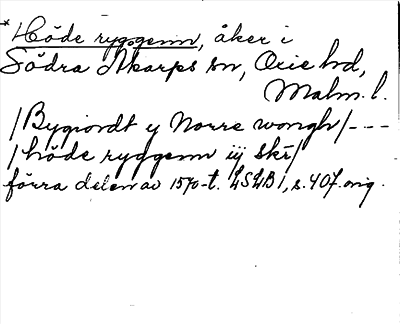 *Höde ryggenn, åker i
Södra Åkarps sn, Oxie hd,
Malm. l.
/Bygiordt y Norre wongh/---
/höde ryggenn iij skr/
förra delen av 1570-t. LSLB 1, s. 407. orig.